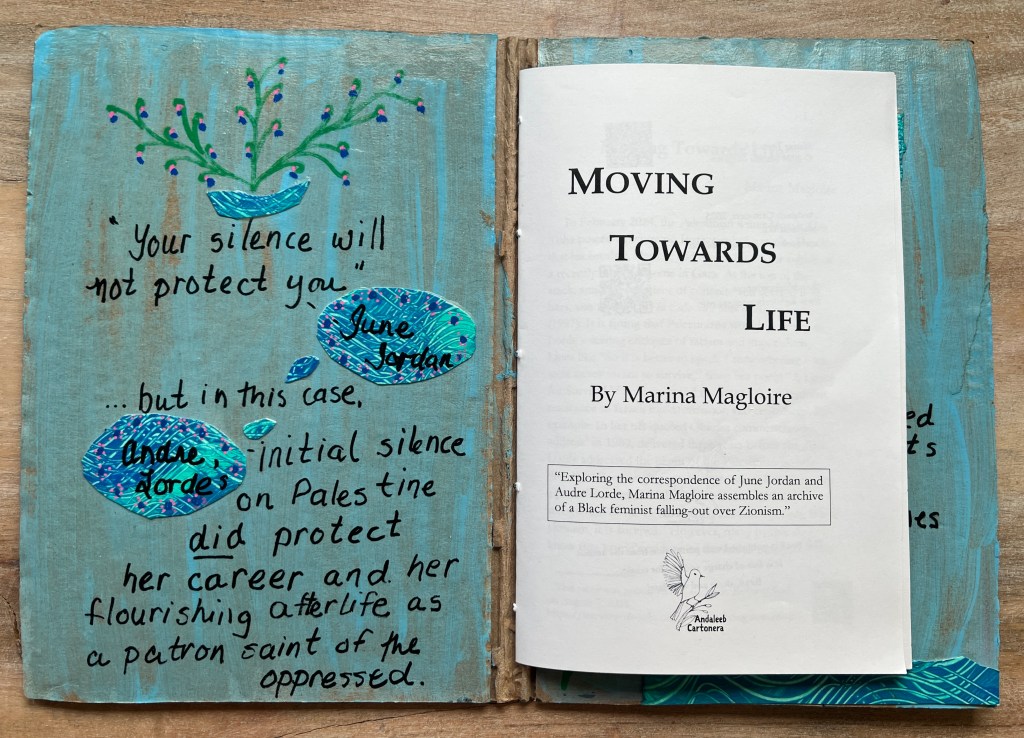 "Your silence will
not protect you"
June
Jordan
... but in this case,
Andre,
Lordes
initial silence
on Palestine
did protect
her career and her
flourishing afterlife as
a patron saint of the
oppressed.
MOVING
TOWARDS
LIFE
By Marina Magloire
"Exploring the correspondence of June Jordan and
Audre Lorde, Marina Magloire assembles an archive
of a Black feminist falling-out over Zionism."
Andaleeb
Cartonera